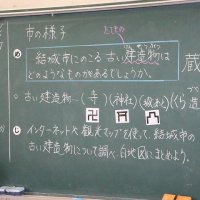 市の様子
たてもの
め 結城市にのこる 古い建造物は
どのようなものがあるでしょうか。
蔵
古い建造物…(寺)(神社)(城あと)(くら
卍 凸
じ インターネットや観光マップを使って、結城市の
古い建造物について調べ、白地図にまとめよう。